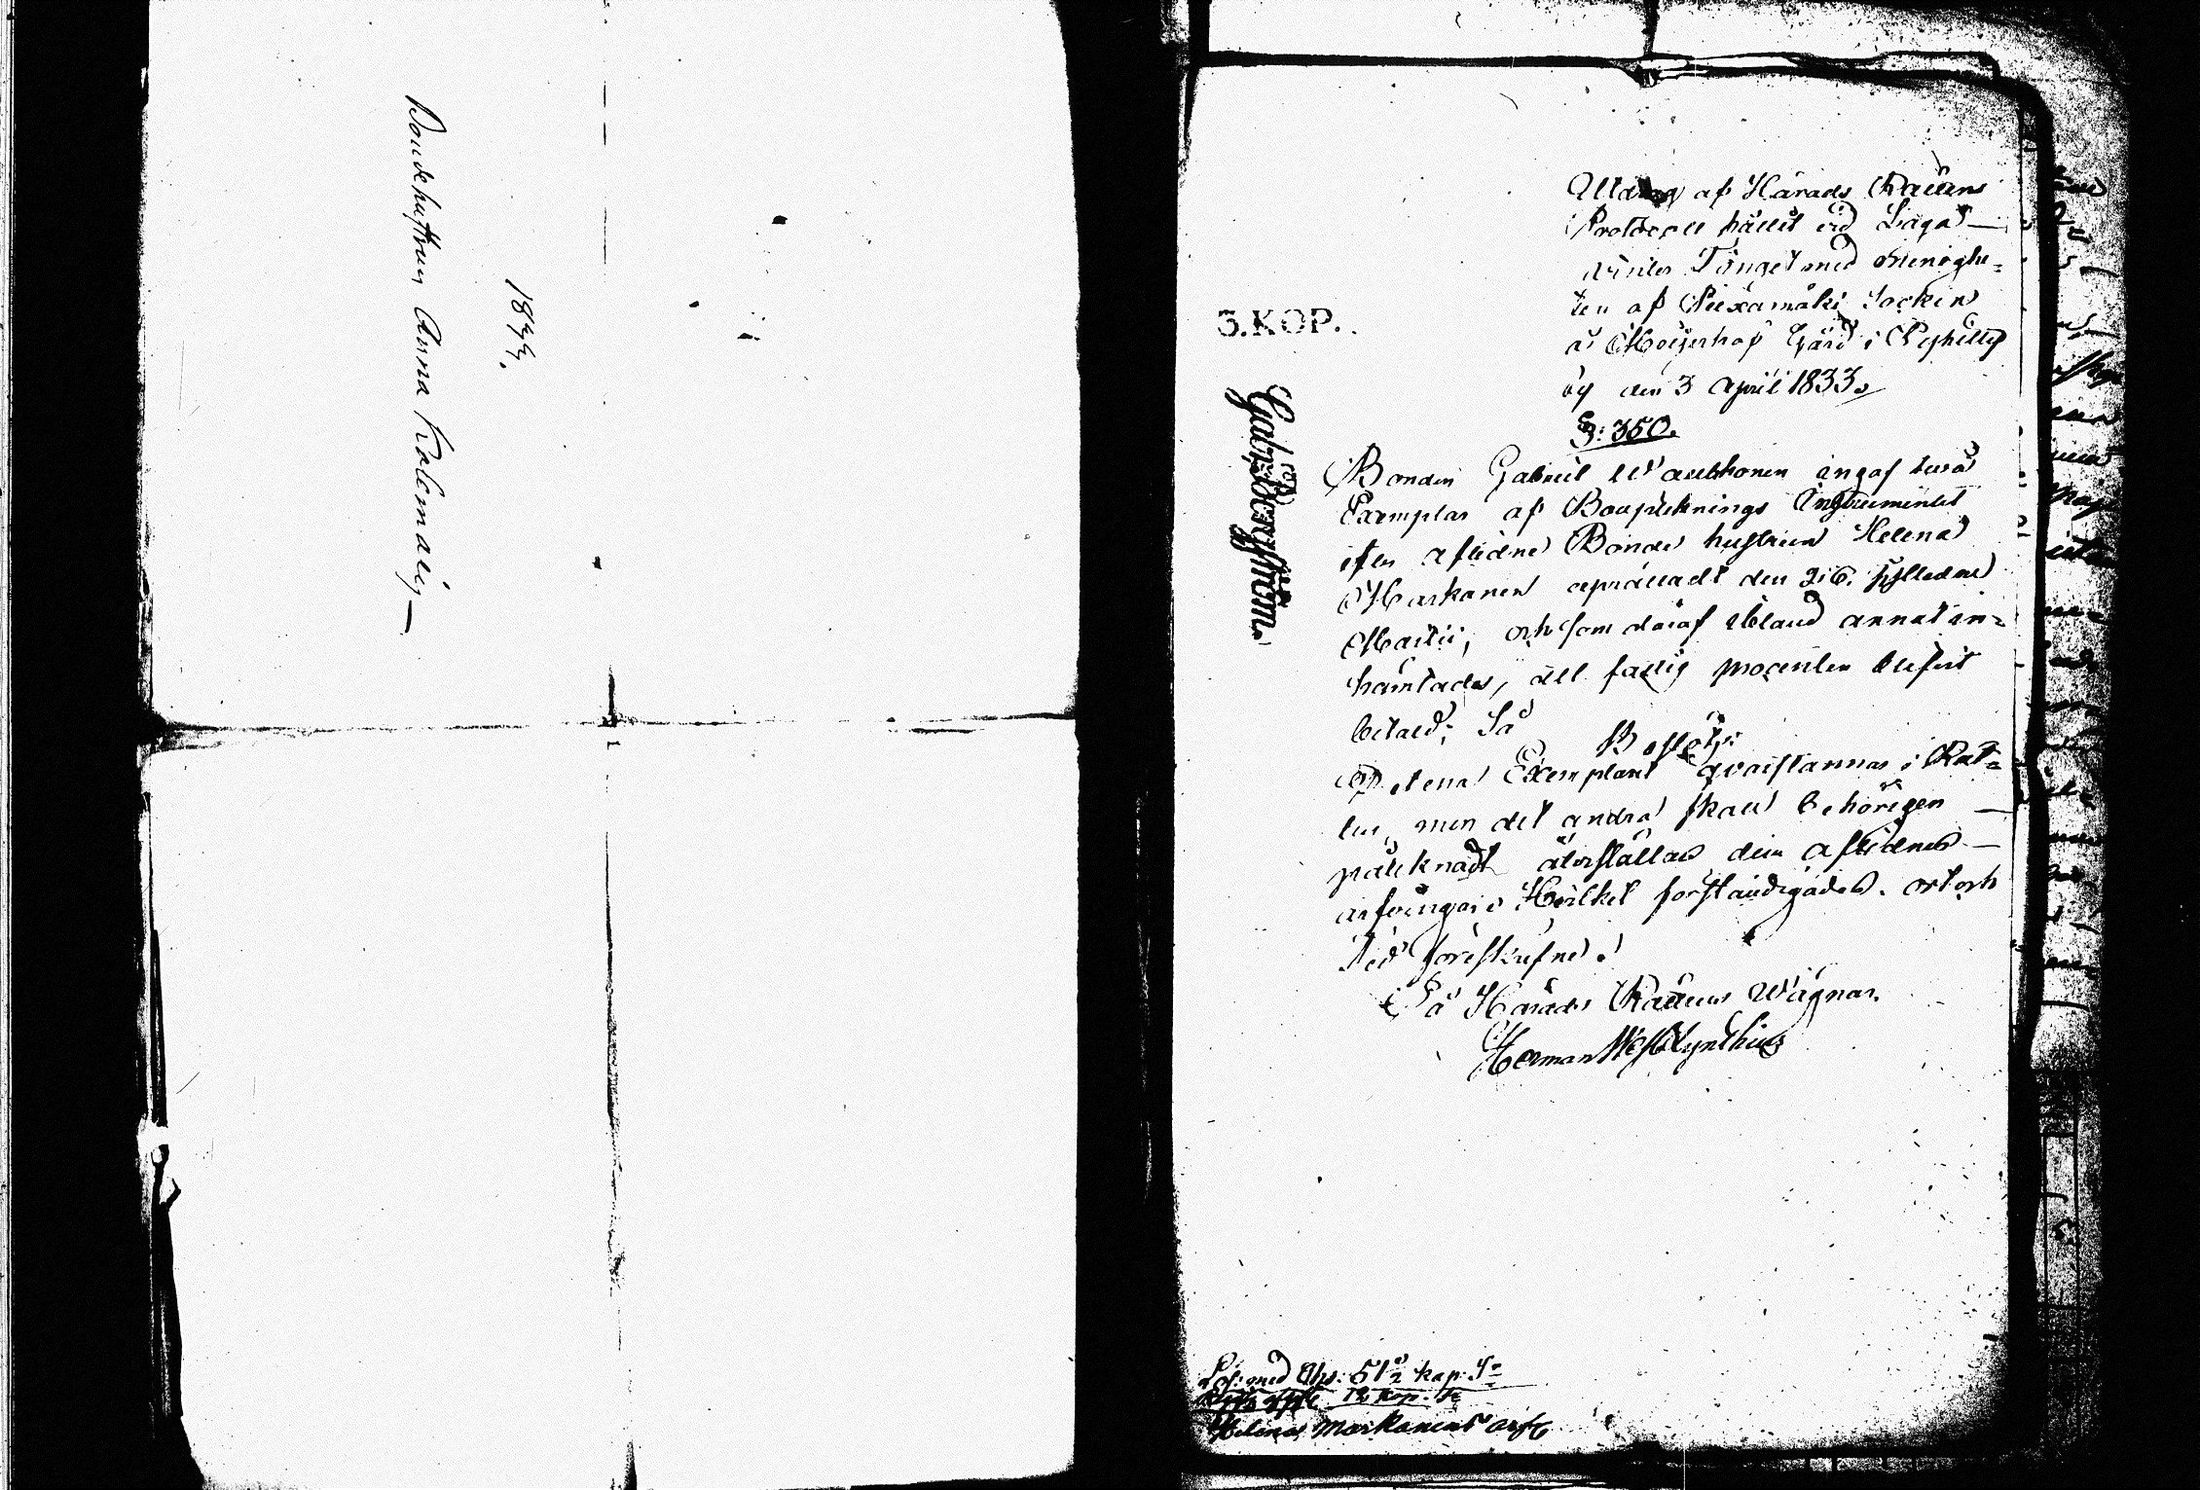 Bondehustrun Anna Kolemain
1833.
Utdrag af Härads Rättens
Protocoll hållit vid Laga
vinter Tinget med Menighe=
ten af Piexämäki Socken
å Moijerhof Gård i Pyhitty
by den 3 April 1833.
§: 350.
3.KOP.
Gab: Bergström.
Bonden Gabriel Wauhkonen ingaf tvåa
Exemplar af Boupteknings Instrumentet
efter aflidne Bonde hustrun Helena
Markanen uprättadt den 26. sistledne
Martii, och som däraf ibland annat in=
hämtades, att fattig procenten blifvit
betald; Så
Beslöts:
Det ena Exemplaret qvarstannar i Rät=
ten, men det andra skall behörigen
påteknadt återställas den aflidnes
arfvingar. Hvilket förständigades. ort och
Tid föreskrefne.
På Härads Rättens Wägnar.
Herman W. Molynthius
Lös: med Ahs: 51 1/2 kop: Sr
12 kop. Sr
Helena Markanens arft